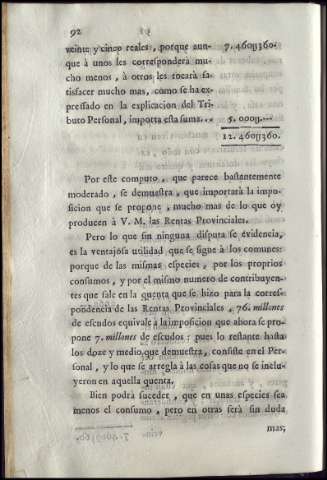 92
veinte y cinco reales, porque aun- 7. 460y360.
que à unos les corresponderà mu-
cho menos, à otros les tocarà sa-
tisfacer mucho mas, como se ha ex-
pressado en la explicacion del Tri-
buto Personal, importa esta suma... 5. 000y....
12. 460y360.
Por este computo, que parece bastantemente
moderado, se demuestra, que importarà la impo-
sicion que se propone, mucho mas de lo que oy
producen à V. M. las Rentas Provinciales.
Pero lo que sin ninguna disputa se evidencia,
es la ventajosa utilidad que se sigue à los comunes:
porque de las mismas especies, por los proprios
consumos, y por el mismo numero de contribuyen-
tes que sale en la quenta que se hizo para la corres-
pondencia de las Rentas Provinciales, 76. millones
de escudos equivale à la imposicion que ahora se pro-
pone 7. millones de escudos: pues lo restante hasta
los doze y medio que demuestra, consiste en el Per-
sonal, y lo que se arregla à las cosas que no se inclu-
yeron en aquella quenta.
Bien podrà suceder, que en unas especies sea
menos el consumo, pero en otras serà sin duda
mas;